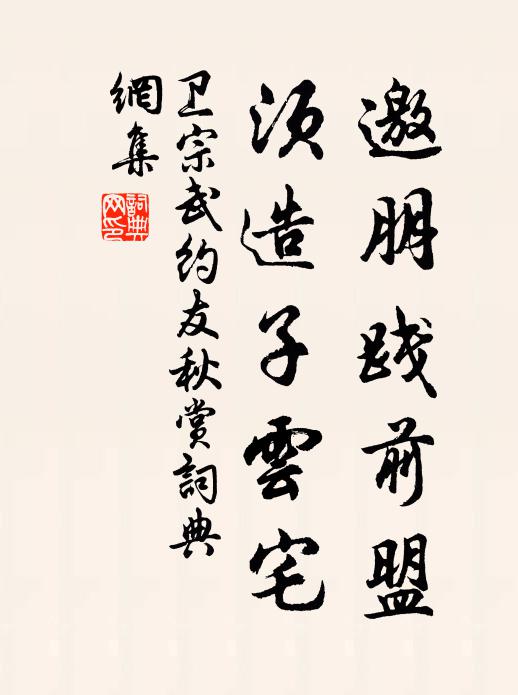 邀朋践前盟
须造子雲宅
卫宗武约友秋赏詞典
網集
詞典
网印